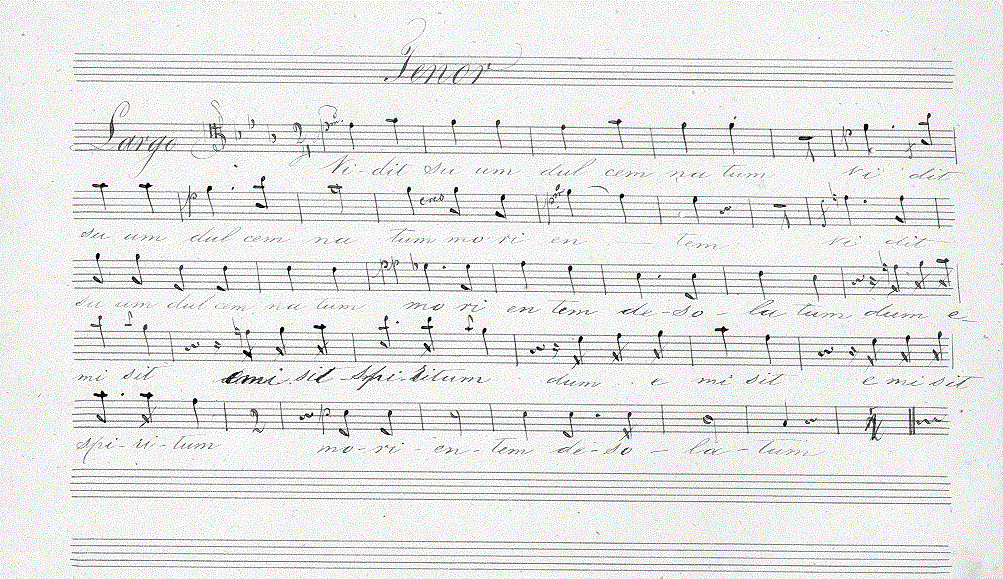 Tenor
Largo
Vi-dit su um dul cem na tum Vi dit
su um dul cem na tum mo ri en - - tem Vi dit
su um dul cem na tum mo ri en tem de-so-la tum dum e-
mi sit emi sit spi-ritum dum e mi sit e mi sit
spi-ri-tum mo-ri-en-tem de-so-la-tum